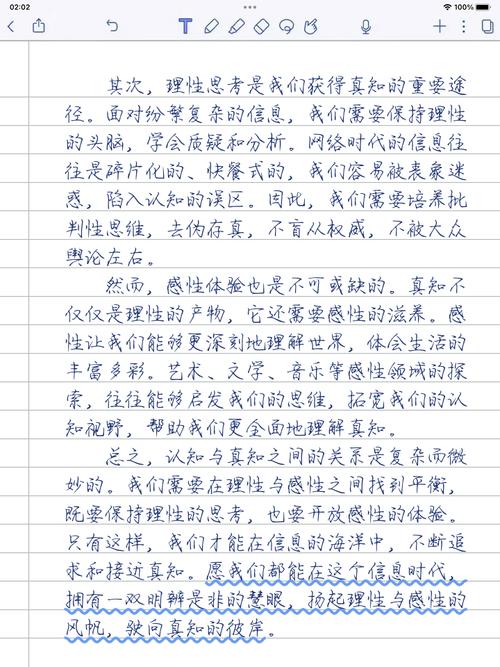 02:02
100%
T
其次，理性思考是我们获得真知的重要途
径。面对纷繁复杂的信息，我们需要保持理性
的头脑，学会质疑和分析。网络时代的信息往
往是碎片化的、快餐式的，我们容易被表象迷
惑，陷入认知的误区。因此，我们需要培养批
判性思维，去伪存真，不盲从权威，不被大众
舆论左右。
然而，感性体验也是不可或缺的。真知不
仅仅是理性的产物，它还需要感性的滋养。感
性让我们能够更深刻地理解世界，体会生活的
丰富多彩。艺术、文学、音乐等感性领域的探
索，往往能够启发我们的思维，拓宽我们的认
知视野，帮助我们更全面地理解真知。
总之，认知与真知之间的关系是复杂而微
妙的。我们需要在理性与感性之间找到平衡，
既要保持理性的思考，也要开放感性的体验。
只有这样，我们才能在信息的海洋中，不断追
求和接近真知。愿我们都能在这个信息时代，
拥有一双明辨是非的慧眼，扬起理性与感性的
风帆，驶向真知的彼岸。